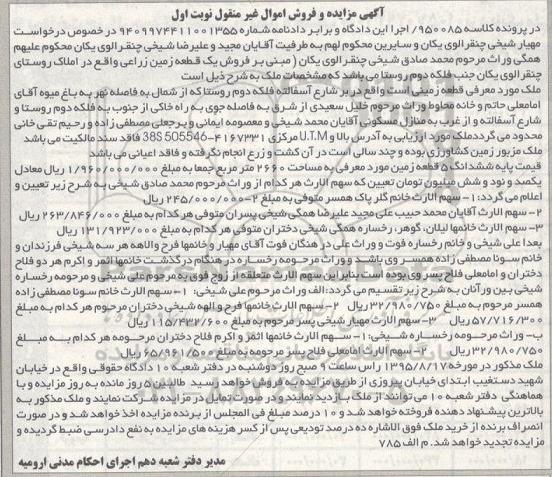 آگهی مزایده و فروش اموال غیر منقول نوبت اول
در پرونده کلاسه ۹۵۰۰۸۵/ اجرا این دادگاه و برابر دادنامه شماره ۹۴۰۹۹۷۴۴۱۱۰۰۱۳۵۵ در خصوص درخواست
مهیار شیخی چنقرالوی یکان و سایرین محکوم لهم به طرفیت آقایان مجید و علیرضا شیخی چنقرالوی یکان محکوم علیهم
همگی وراث مرحوم محمد صادق شیخی چنقرالوی یکان ( مبنی بر فروش یک قطعه زمین زراعی واقع در املاک روستای
چنقرالوی یکان جنب فلکه دوم روستا می باشد که مشخصات ملک به شرح ذیل است
ملک مورد معرفی قطعه زمینی است واقع در بر شارع آسفالته فلکه دوم روستا که از شمال به فاصله نهر به باغ میوه آقای
امامعلی حاتم و خانه محاوط وراث مرحوم خلیل سعیدی از شرق به فاصله جوی به راه خاکی از جنوب به فلکه دوم روستا و
شارع آسفالته و از غرب به منازل مسکونی آقایان محمد شیخی و معصومه ایمانی و پرجعلی مصطفی زاده و رحیم تقی خانی
محدود می گردد ملک مورد ارزیابی به آدرس بالا و U.T.M مرکزی ۴۱۶۷۳۳۱-38S 505546 فاقد سند مالکیت می باشد
ملک مزبور زمین کشاورزی بوده و چند سالی است در آن کشت و زرع انجام نگرفته و فاقد اعیانی می باشد
قیمت پایه ششدانگ ۵ قطعه زمین مورد معرفی به مساحت ۲۶۶۰ متر مربع جمعا به مبلغ ۱/۹۶۰/۰۰۰/۰۰۰ ریال معادل
یکصد و نود و شش میلیون تومان تعیین که سهم الارث هر کدام از وراث مرحوم محمد صادق شیخی به شرح زیر تعیین و
اعلام می گردد: ۱- سهم الارث خانم گلر پاک همسر متوفی به مبلغ ۲۴۵/۰۰۰/۰۰۰-۲ ریال
۲- سهم الارث آقایان محمد حبیب علی مجید علیرضا همگی شیخی پسران متوفی هر کدام به مبلغ ۲۶۳/۸۴۶/۰۰۰ ریال
۳- سهم الارث خانمها لیلان، گوهر، رخساره همگی شیخی دختران متوفی هر کدام به مبلغ ۱۳۱/۹۲۳/۰۰۰ ریال
بعدا علی شیخی و خانم رخساره فوت و وراث علی در هنگان فوت آقای مهیار و خانمها فرح و الاهه هر سه شیخی فرزندان و
خانم سونا مصطفی زاده همسر وی باشد و وراث مرحومه رخساره در هنگام درگذشت خانمها اثمر و اکرم هر دو فلاح
دختران و امامعلی فلاح پسر وی بوده است بنابراین سهم الارث متعلقه از زوج فوق به مرحوم علی شیخی و مرحومه رخساره
شیخی بین ورآنان به شرح زیر تقسیم می گردد: الف وراث مرحوم علی شیخی: ۱- سهم الارث خانم سونا مصطفی زاده
همسر مرحوم به مبلغ ۳۲/۹۸۰/۷۵۰ ریال ۲- سهم الارث خانمها فرح و الهه شیخی دختران مرحوم هر کدام به مبلغ
۵۷/۷۱۶/۳۰۰ ریال ۳- سهم الارث مهیار شیخی پسر مرحوم به مبلغ ۱۱۵/۴۳۲/۶۰۰ ریال
ب- وراث مرحومه رخساره شیخی: ۱- سهم الارث خانمها اثمر و اکرم فلاح دختران مرحومه هر کدام به مبلغ
۳۲/۹۸۰/۷۵۰ ریال ۲- سهم الارث امامعلی فلاح پسر مرحومه به مبلغ ۶۵/۹۶۱/۵۰۰ ریال
ملک مذکور در مورخه ۱۳۹۵/۸/۱۷ راس ساعت ۹ صبح روز دوشنبه در دفتر شعبه ۱۰ دادگاه حقوقی واقع در خیابان
شهید دستغیب ابتدای خیابان پیروزی از طریق مزایده به فروش خواهد رسید طالبین ۵ روز مانده به روز مزایده و با
هماهنگی دفتر شعبه ۱۰ می توانند از ملک بازدید نمایند و در صورت تمایل در مزایده شرکت نمایند و ملک مذکور به
بالاترین پیشنهاد دهنده فروخته خواهد شد و ۱۰ درصد مبلغ فی المجلس از برنده مزایده اخذ خواهد شد و در صورت
انصراف برنده از خرید ملک فوق الاشاره ده درصد تودیعی پس از کسر هزینه های مزایده به نفع دادرسی ضبط گردیده و
مزایده تجدید خواهد شد. م الف ۷۸۵
مدیر دفتر شعبه دهم اجرای احکام مدنی ارومیه